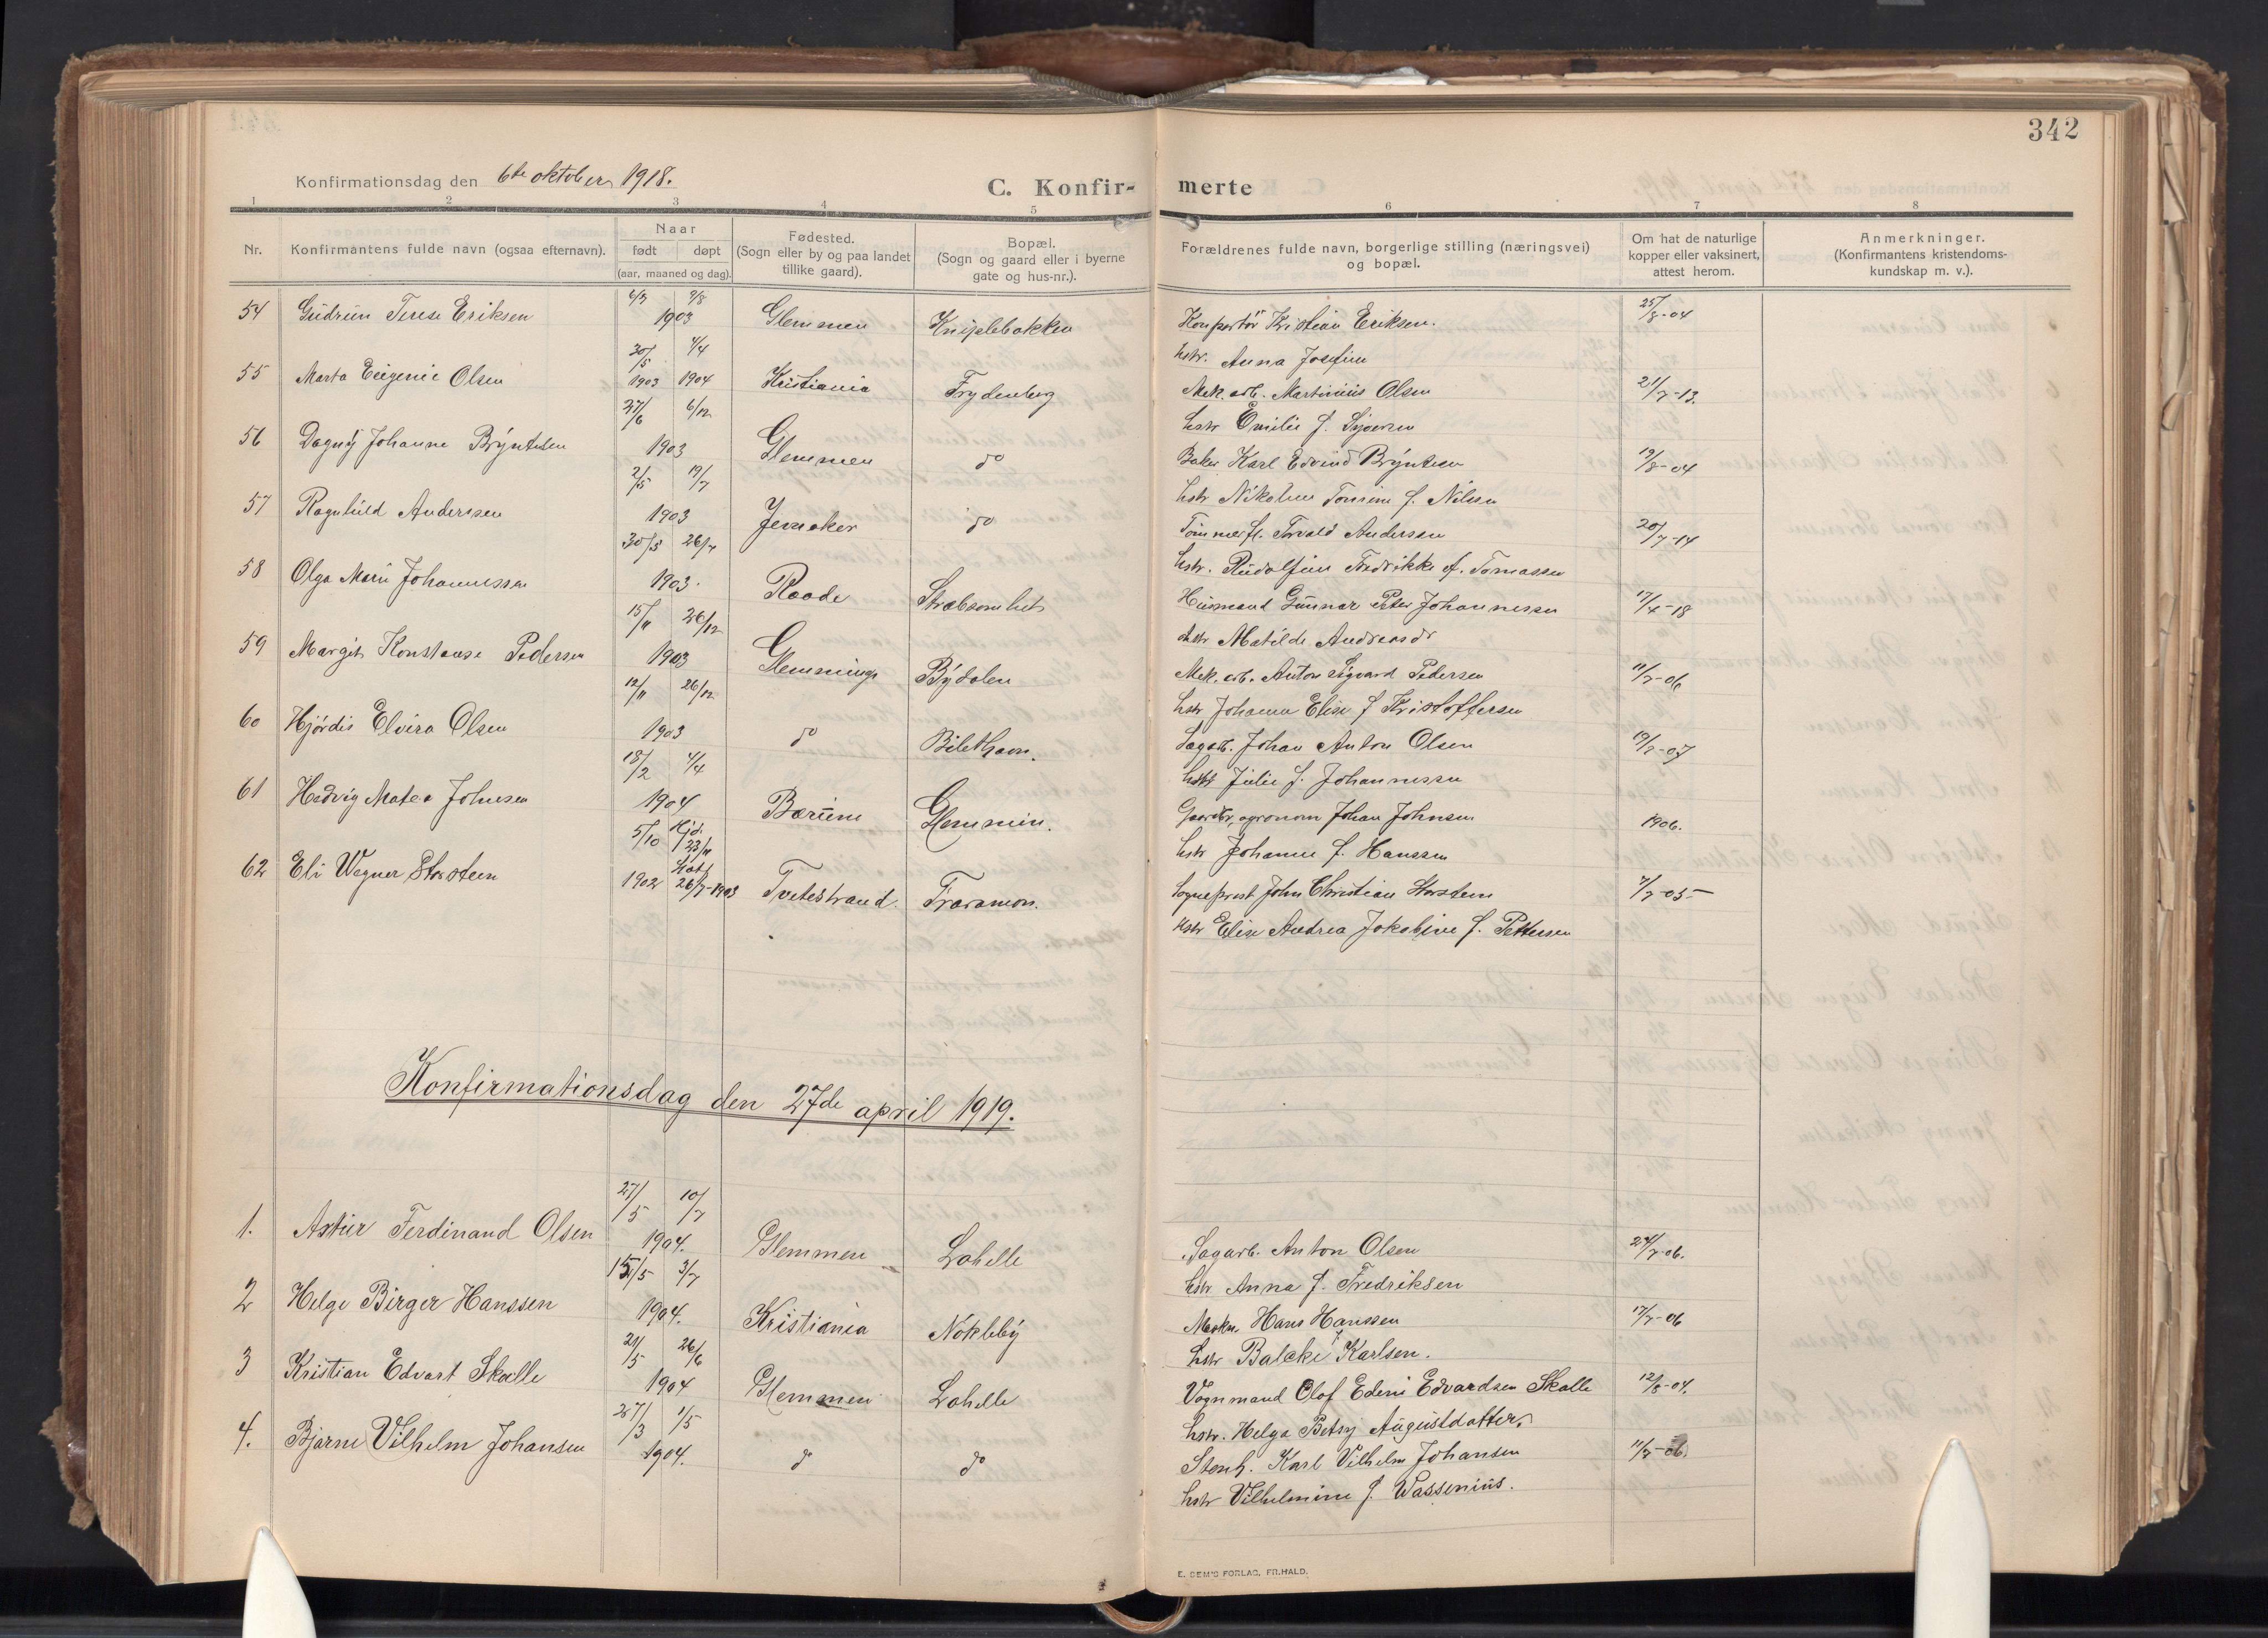 342
Konfirmationsdag den 6te oktober 1918.
C. Konfirmerte
1 2 3 4 5 6 7 8
Nr. Konfirmantens fulde navn (ogsaa efternavn). Naar født døpt (aar, maaned og dag). Fødested. (Sogn eller by og paa landet tillike gaard). Bopæl. (Sogn og gaard eller i byerne gate og hus-nr.). Forældrenes fulde navn, borgerlige stilling (næringsvei) og bopæl. Om hat de naturlige kopper eller vaksinert, attest herom. Anmerkninger. (Konfirmantens kristendomskundskap m. v.).
54 Gudrun Terese Eriksen 6/3 9/8 1903 Glemmen Kniplebakken Kristian Eriksen. 25/8-04
hstr. Anna Josefine
55 Marta Eugenie Olsen 30/5 1903 4/4 1904 Kristiania Frydenberg Mek. arb. Martinius Olsen 21/7-13.
hstr Emilie f. Syversen
56 Dagny Johanne Bryntesen 27/6 6/12 1903 Glemmen do Baker Karl Edvind Bryntesen 19/8-04
hstr Nikoline Tomine f. Nilsen
57 Ragnhild Anderssen 2/5 19/7 1903 Jevnaker do Tømmerfl. Torvald Anderssen 20/7-14
hstr. Rudolfine Fredrikke f. Tomassen
58 Olga Marie Johannessen 30/5 26/7 1903. Raade Husmand Gunnar Peter Johannessen 17/4-18
hstr Matilde Andreasdr
59 Margit Konstanse Pedersen 15/11 26/12 1903 Glemminge Bydalen Mek. arb. Anton Sigvard Pedersen 11/7-06
hstr Johanne Elise f Kristoffersen
60 Hjørdis Elvira Olsen 12/11 26/12 1903 do Sagarb. Johan Anton Olsen 19/7-07
hstr Julie f. Johannessen
61 Hedvig Matea Johnsen 18/2 4/4 1904 Bærum Glemmin. Gaardbr, agronom Johan Johnsen 1906.
hstr Johanne f. Hanssen
62 Eli Wegner Storsteen 5/10 1902 Hjd. 23/11 Stadf 26/7-1903 Tvetestrand. Traramon. Sogneprest John Christian Storsteen 7/7-05
hstr Elise Andrea Jakobine f. Pettersen
Konfirmationsdag den 27de april 1919.
1. Astur Ferdinand Olsen 27/5 10/7 1904. Glemmen Lahelle Sagarb. Anton Olsen 24/7-06.
hstr Anna f. Fredriksen
2 Helge Birger Hanssen 15/5 3/7 1904. Kristiania Nokleby Mask. Hans Hanssen 17/7-06
hstr Balcke f Karlsen.
3 Kristian Edvart Skalle 21/5 26/6 1904 Glemmen Lahelle Vognmand Olof Edvardsen Skalle 12/8-04.
hstr. Helga Betsy Augustdatter.
4. Bjarne Vilhelm Johansen 27/3 1/5 1904. do do Stenh. Karl Vilhelm Johansen 11/7-06.
hstr Vilhelmine f. Wassenius.
E. SEM'S FORLAG, FR.HALD.